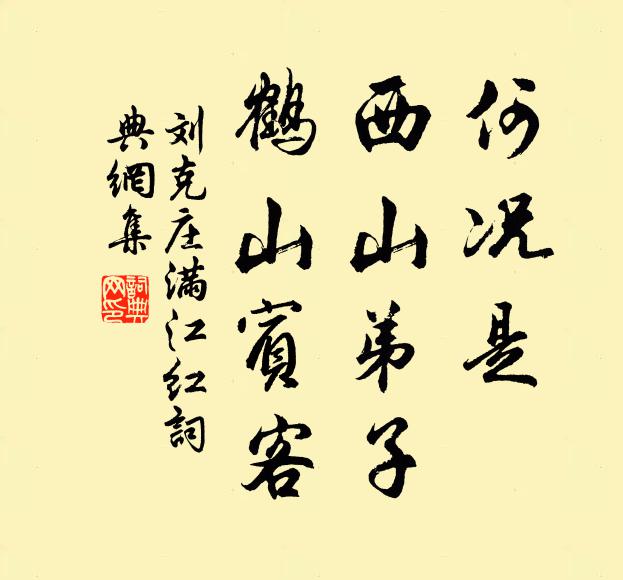 何况是
西山弟子
鹤山賓客
刘克庄满江红詞
典網集
詞典
网印